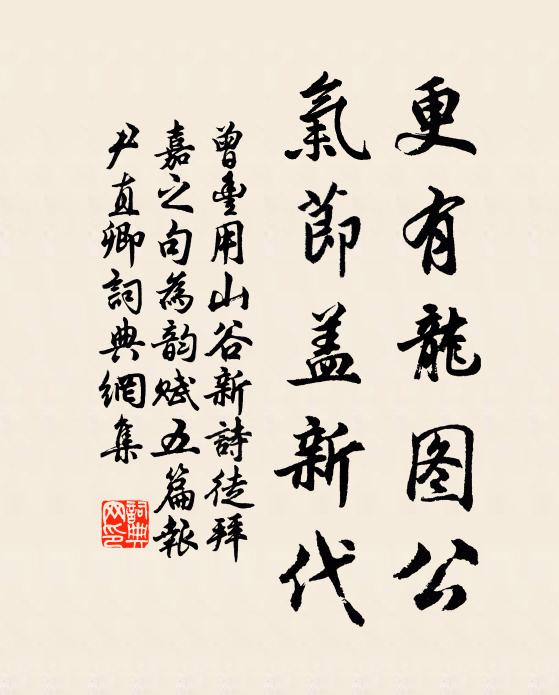 更有龍图公
氣節盖新代
曾豊用山谷新詩徒拜
嘉之句為韵赋五篇報
尹直卿詞典網集
詞典网印